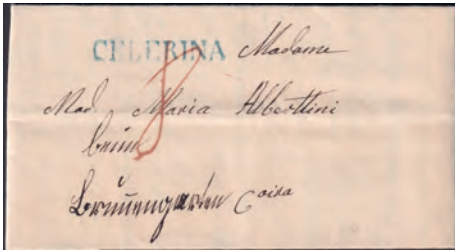 CELERINA Madame
8
Mad. Maria Albertini
beim
Brunnengarten Coira